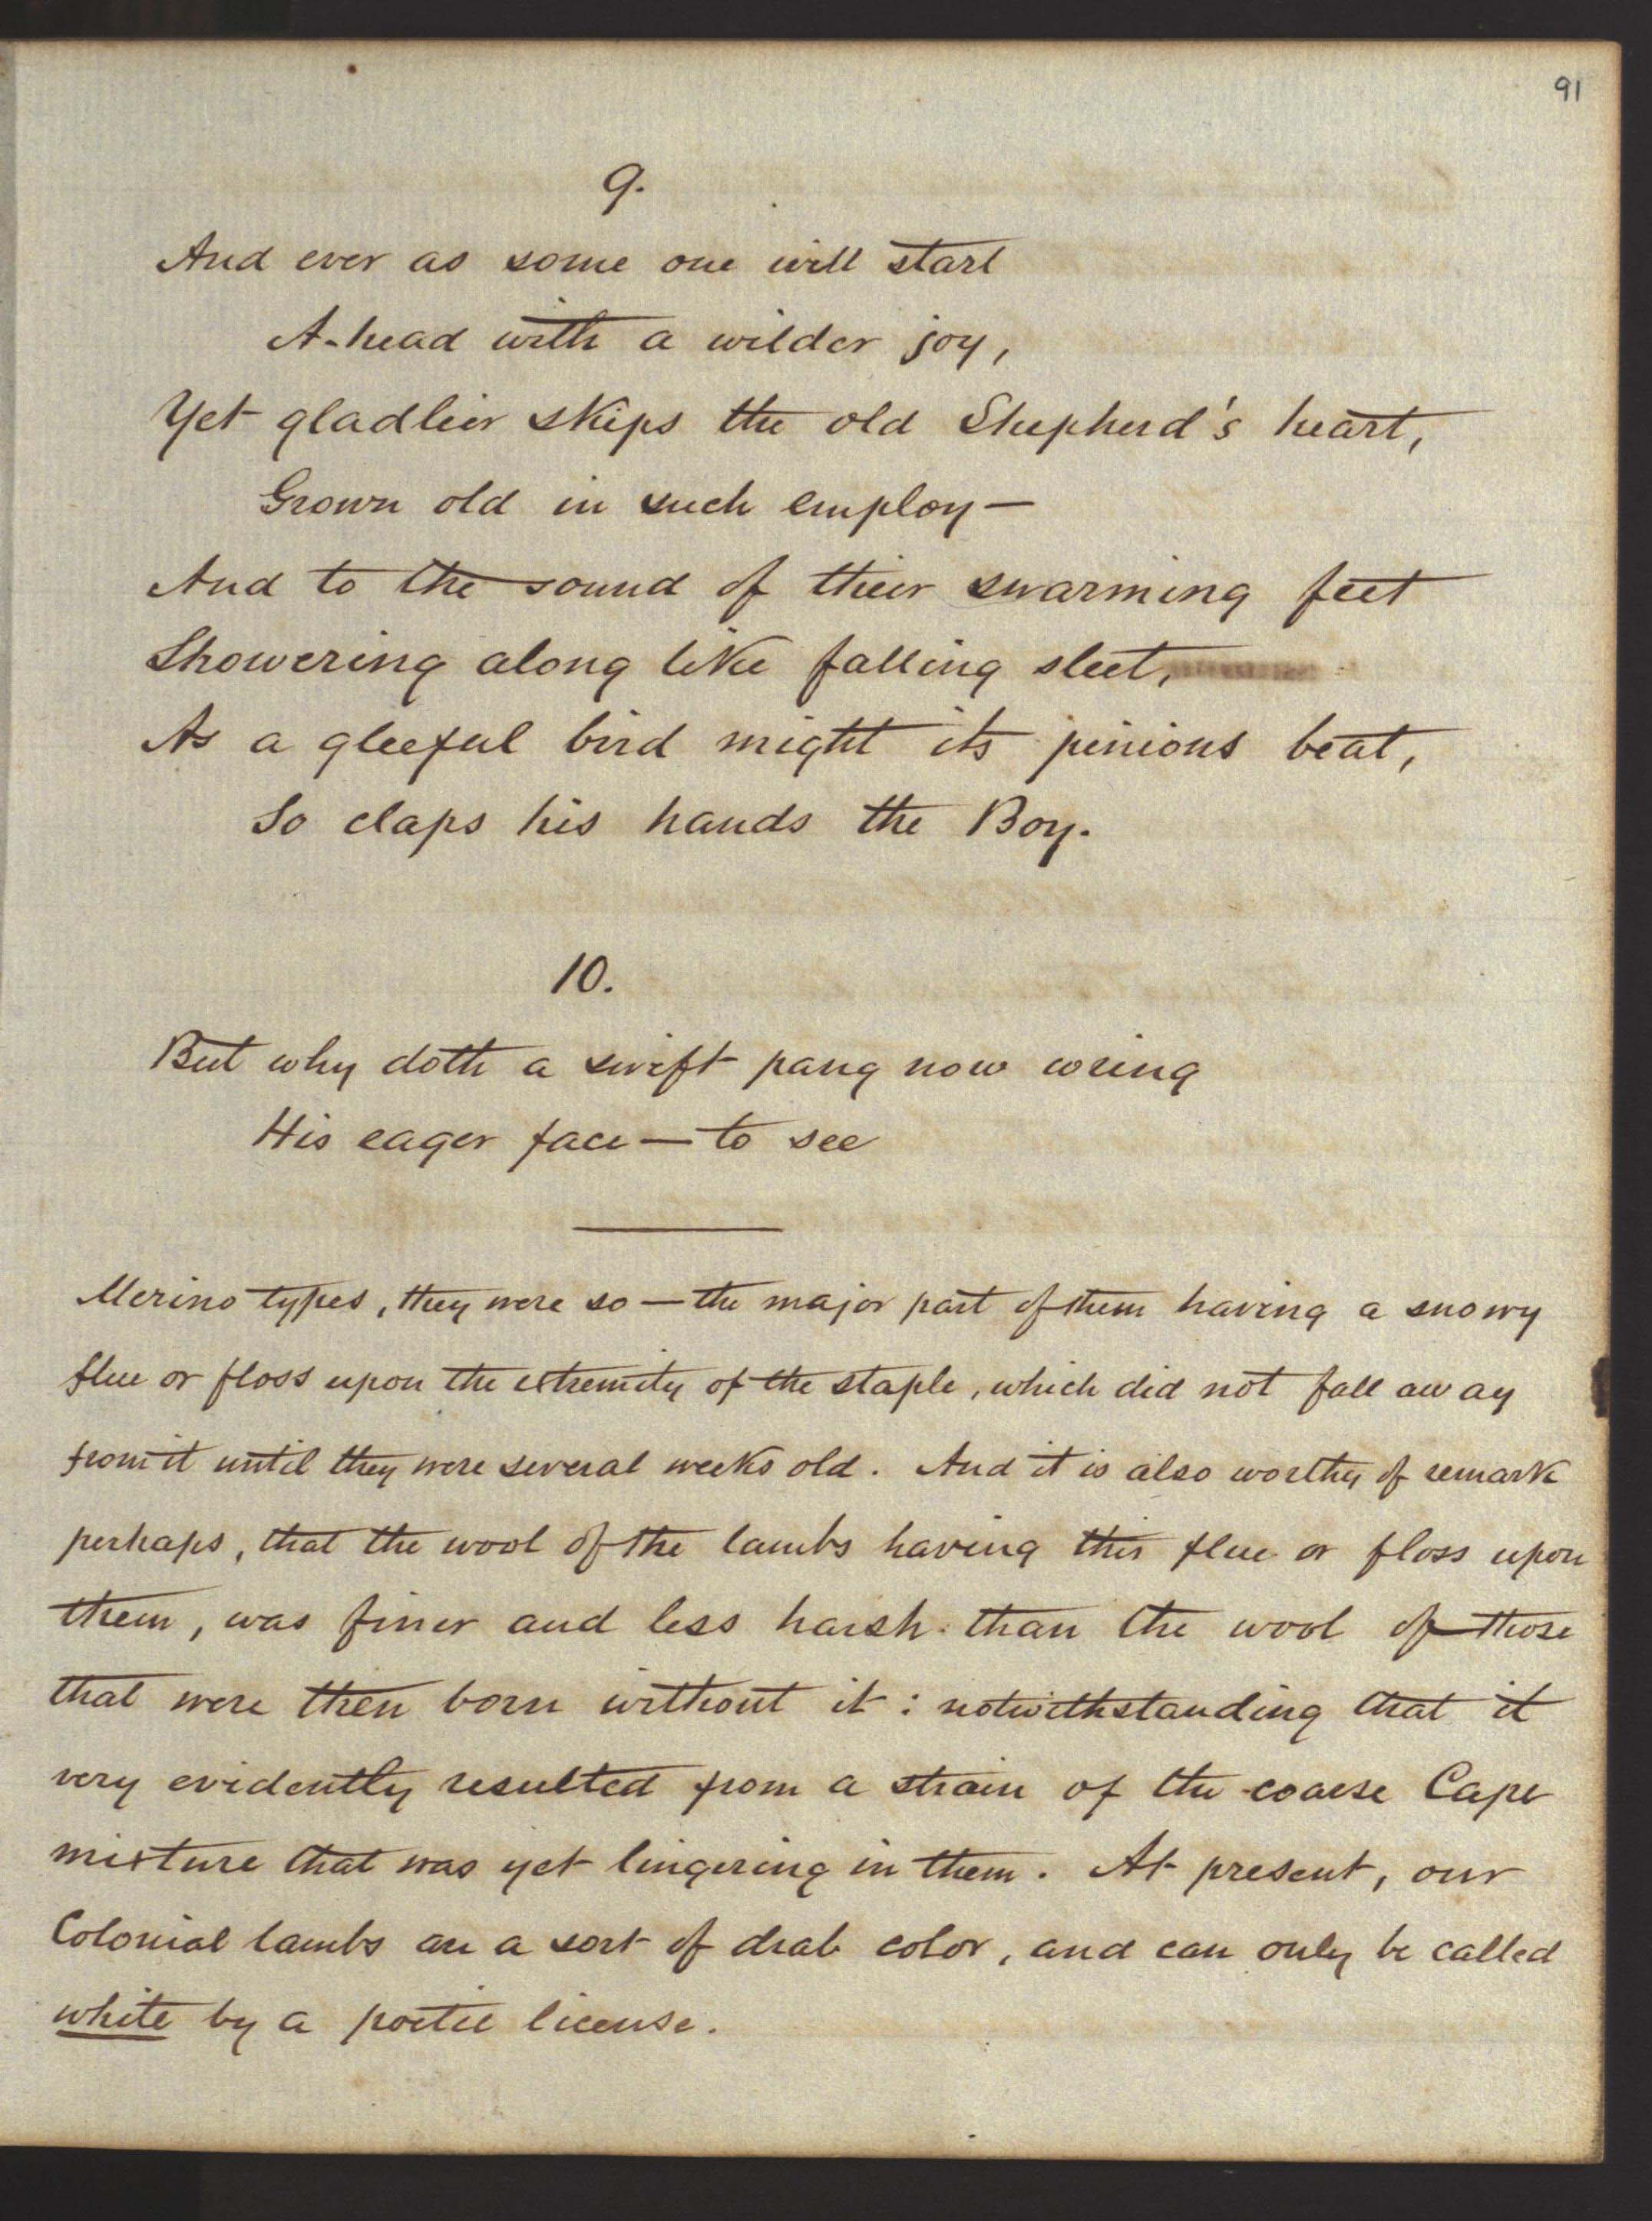 91
9.
And ever as some one will start
A-head with a wilder joy,
Yet gladlier skips the old Shepherd's heart,
Grown old in such employ —
And to the sound of their swarming feet
Showering along like falling sleet,
As a gleeful bird might its pinions beat,
So claps his hands the Boy.
10.
But why doth a swift pang now wring
His eager face — to see
Merino types, they were so — the major part of them having a snowy
flue or floss upon the extremity of the staple, which did not fall away
from it until they were several weeks old. And it is also worthy of remark
perhaps, that the wool of the lambs having this flue or floss upon
them, was finer and less harsh than the wool of those
that were then born without it: notwithstanding that it
very evidently resulted from a strain of the coarse Cape
mixture that was yet lingering in them. At present, our
Colonial lambs are a sort of drab color, and can only be called
white by a poetic license.